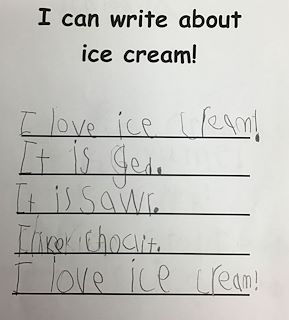 I can write about
ice cream!
I love ice cream!
It is ged.
It is sawr.
I love ice cream!